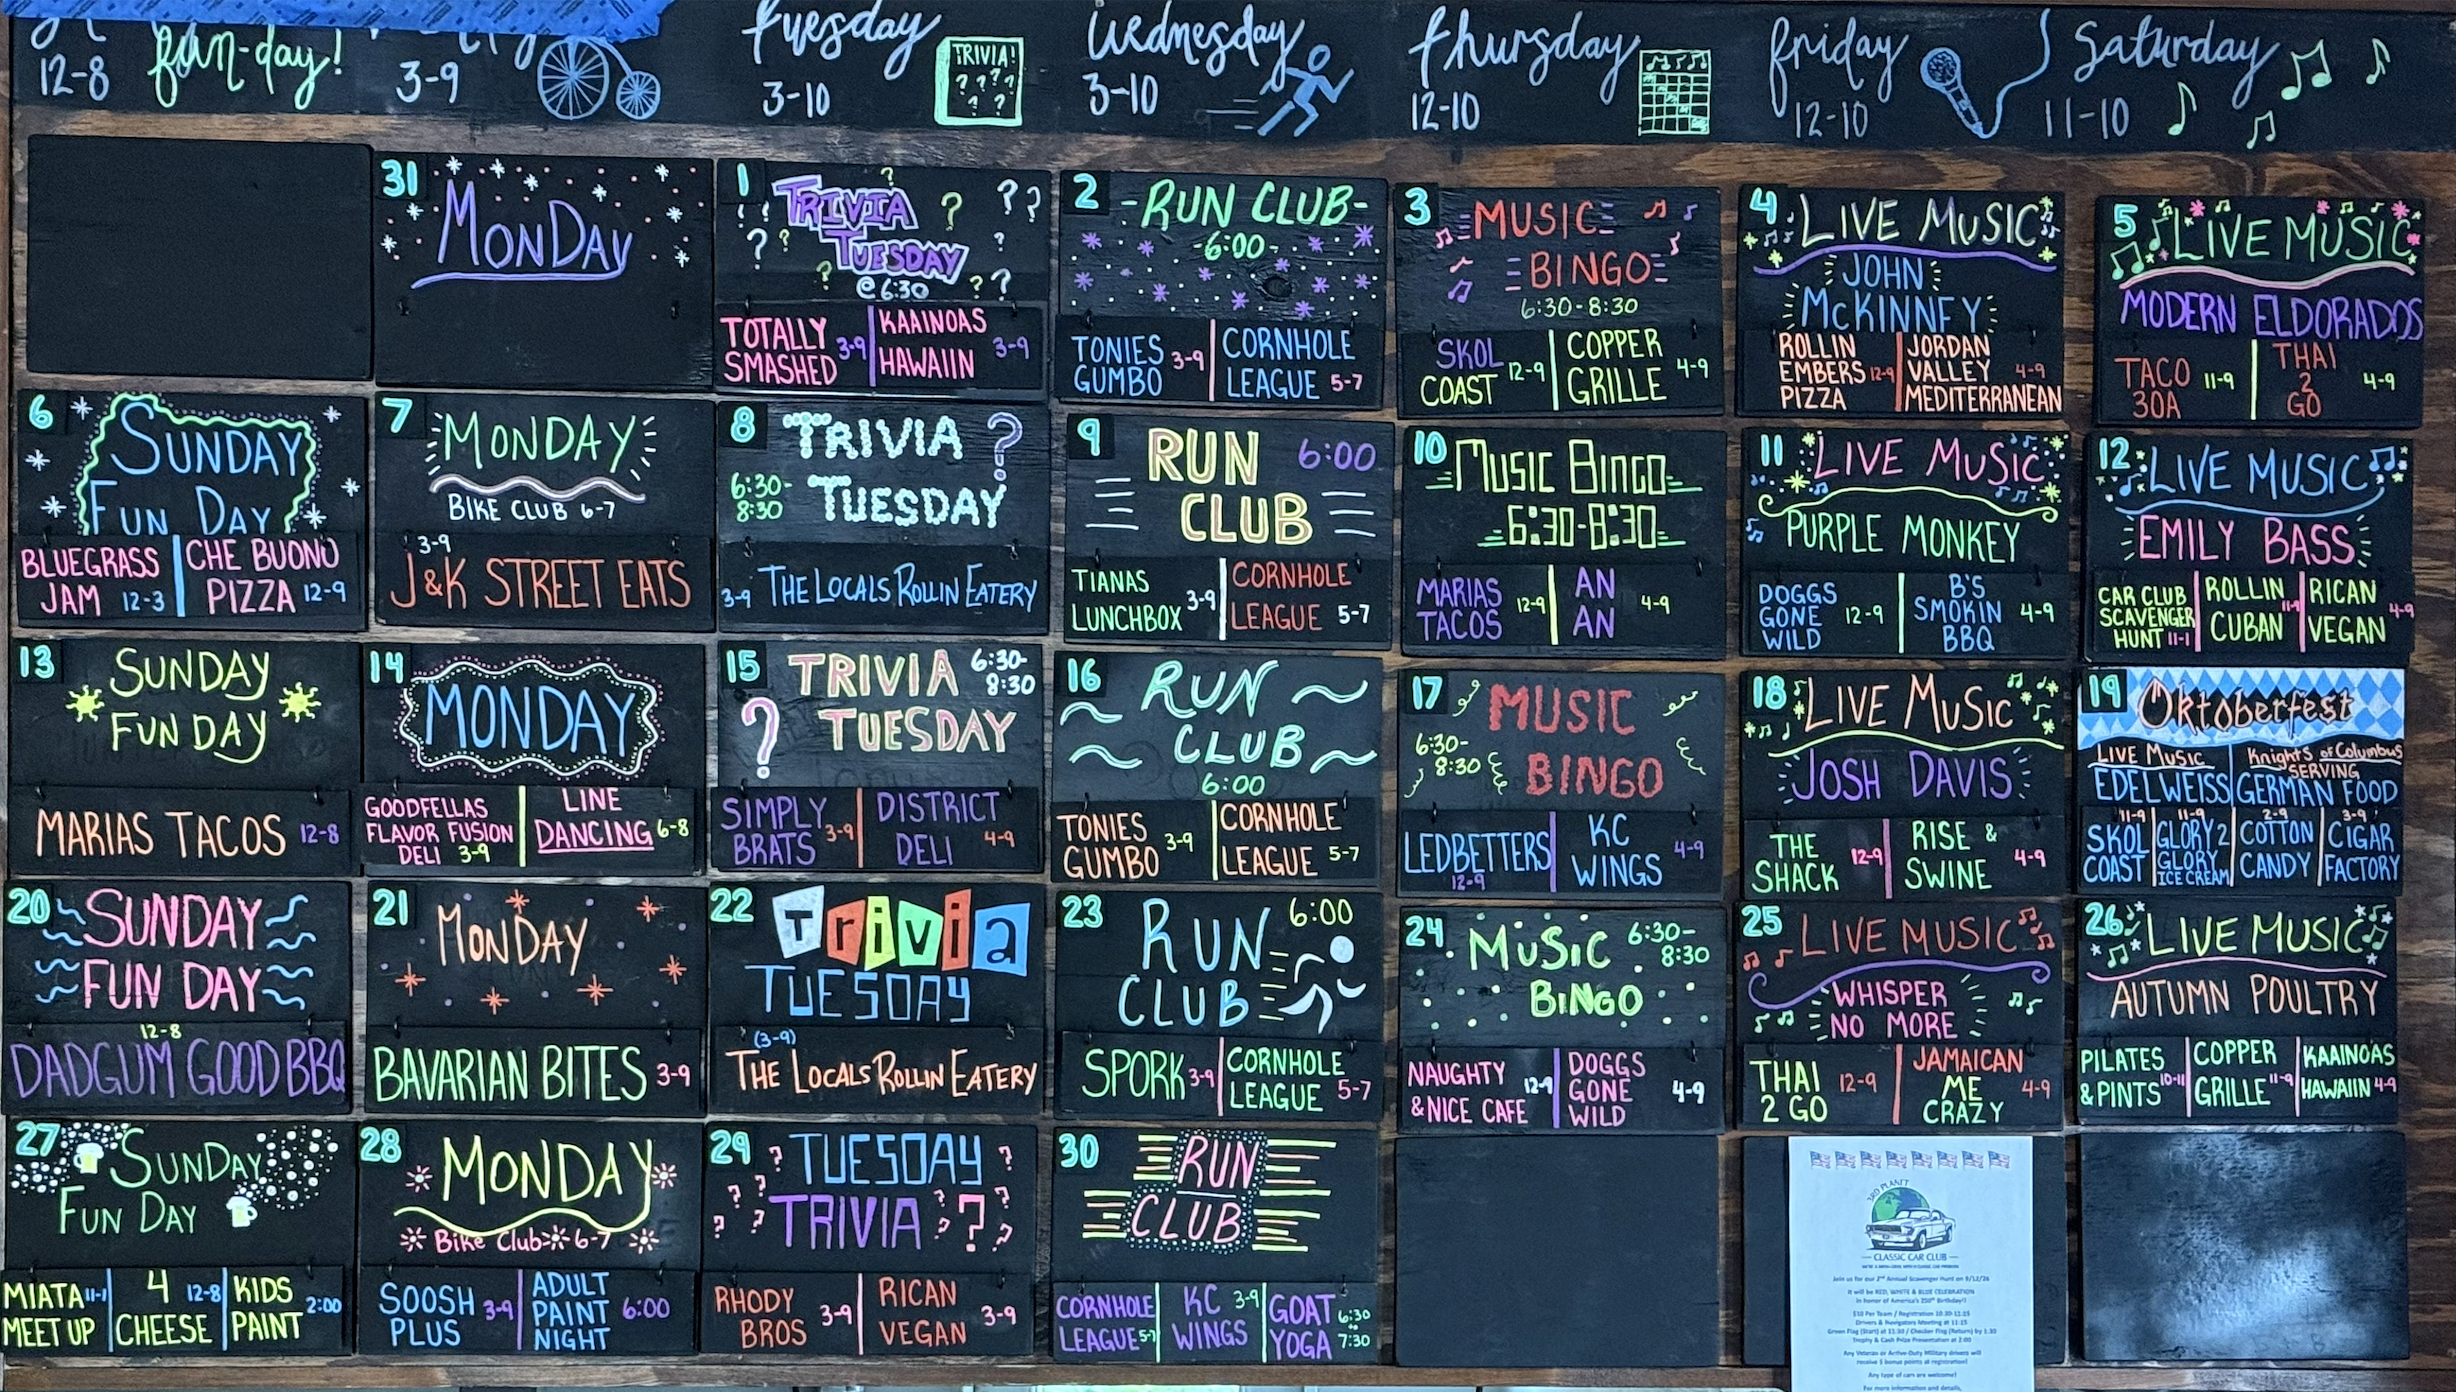 12-8
fun-day!
3-9
Tuesday
3-10
TRIVIA!
? ? ? ?
? ?
Wednesday
3-10
Thursday
12-10
friday
12-10
Saturday
11-10
31
MONDAY
1
TRIVIA
TUESDAY
@ 6:30
TOTALLY
SMASHED 3-9
KAAINOAS
HAWAIIN 3-9
2
-RUN CLUB-
-6:00-
TONIES
GUMBO 3-9
CORNHOLE
LEAGUE 5-7
3
MUSIC
BINGO
6:30-8:30
SKOL
COAST 12-9
COPPER
GRILLE 4-9
4
LIVE MUSIC
JOHN
McKINNEY
ROLLIN
EMBERS 12-9
PIZZA
JORDAN
VALLEY 4-9
MEDITERRANEAN
5
LIVE MUSIC
MODERN ELDORADOS
TACO
30A 11-9
THAI
2
GO 4-9
6
SUNDAY
FUN DAY
BLUEGRASS
JAM 12-3
CHE BUONO
PIZZA 12-9
7
MONDAY
BIKE CLUB 6-7
3-9
J&K STREET EATS
8
TRIVIA ?
6:30-
8:30
TUESDAY
3-9 THE LOCALS ROLLIN EATERY
9
RUN 6:00
CLUB
TIANAS
LUNCHBOX 3-9
CORNHOLE
LEAGUE 5-7
10
MUSIC BINGO
6:30-8:30
MARIAS
TACOS 12-9
AN
AN 4-9
11
LIVE MUSIC
PURPLE MONKEY
DOGGS
GONE 12-9
WILD
B'S
SMOKIN 4-9
BBQ
12
LIVE MUSIC
EMILY BASS
CAR CLUB
SCAVENGER
HUNT 11-1
ROLLIN
CUBAN 11-9
RICAN
VEGAN 4-9
13
SUNDAY
FUN DAY
MARIAS TACOS 12-8
14
MONDAY
GOODFELLAS
FLAVOR FUSION
DELI 3-9
LINE
DANCING 6-8
15
TRIVIA 6:30-
8:30
? TUESDAY
SIMPLY
BRATS 3-9
DISTRICT
DELI 4-9
16
RUN
CLUB
6:00
TONIES
GUMBO 3-9
CORNHOLE
LEAGUE 5-7
17
MUSIC
6:30-
8:30
BINGO
LEDBETTERS
12-9
KC
WINGS 4-9
18
LIVE MUSIC
JOSH DAVIS
THE
SHACK 12-9
RISE &
SWINE 4-9
19
Oktoberfest
LIVE MUSIC
EDELWEISS
Knights of Columbus
SERVING
GERMAN FOOD
11-9
SKOL
COAST
11-9
GLORY 2
GLORY
ICE CREAM
2-9
COTTON
CANDY
3-9
CIGAR
FACTORY
20
SUNDAY
FUN DAY
12-8
DADGUM GOOD BBQ
21
MONDAY
BAVARIAN BITES 3-9
22
Trivia
TUESDAY
(3-9)
THE LOCALS ROLLIN EATERY
23
RUN 6:00
CLUB
SPORK 3-9
CORNHOLE
LEAGUE 5-7
24
MUSIC 6:30-
8:30
BINGO
NAUGHTY
& NICE CAFE 12-9
DOGGS
GONE 4-9
WILD
25
LIVE MUSIC
WHISPER
NO MORE
THAI
2 GO 12-9
JAMAICAN
ME 4-9
CRAZY
26
LIVE MUSIC
AUTUMN POULTRY
PILATES
& PINTS 10-11
COPPER
GRILLE 11-9
KAAINOAS
HAWAIIN 4-9
27
SUNDAY
FUN DAY
MIATA 11-1
MEET UP
4 12-8
CHEESE
KIDS
PAINT 2:00
28
MONDAY
Bike Club 6-7
SOOSH
PLUS 3-9
ADULT
PAINT 6:00
NIGHT
29
TUESDAY
TRIVIA
RHODY
BROS 3-9
RICAN
VEGAN 3-9
30
RUN
CLUB
CORNHOLE
LEAGUE 5-7
KC 3-9
WINGS
GOAT 6:30
YOGA 7:30
3RD PLANET
CLASSIC CAR CLUB
Join us for our 2nd Annual Scavenger Hunt on 9/12/26
It will be RED, WHITE & BLUE CELEBRATION
in honor of America's 250th Birthday!!
$10 Per Team / Registration 10:30-11:15
Drivers & Navigators Meeting at 11:15
Green Flag (Start) at 11:30 / Checker Flag (Return) by 1:30
Trophy & Cash Prize Presentation at 2:00
Any Veteran or Active-Duty Military drivers will
receive 5 bonus points at registration!
Any type of cars are welcome!
For more information and details,